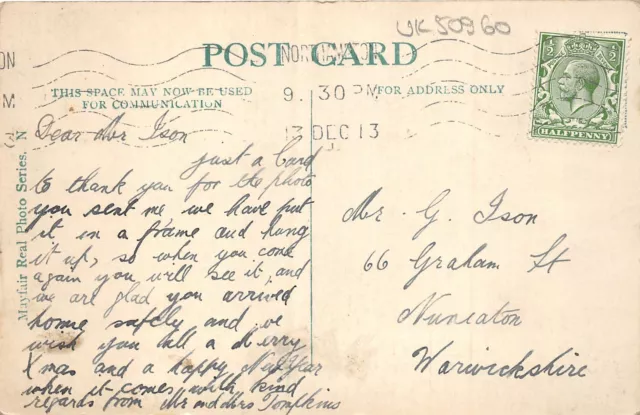 UK50960
POST CARD
NORTHAMPTON
9. 30 PM
13 DEC 13
ON
M
½ ½
HALFPENNY
THIS SPACE MAY NOW BE USED
FOR COMMUNICATION
FOR ADDRESS ONLY
Mayfair Real Photo Series. N
Dear Mr Ison
just a Card
to thank you for the photo
you sent me we have put
it in a frame and hung
it up, so when you come
again you will see it, and
we are glad you arrived
home safely and we
wish you all a Merry
Xmas and a happy New Year
when it comes with kind
regards from Mr and Mrs Tompkins
Mr. G. Ison
66 Graham St
Nuneaton
Warwickshire